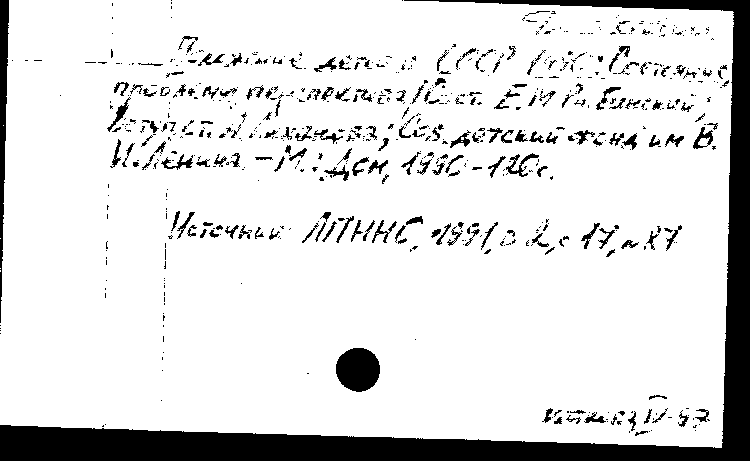 Положение детей в СССР 1990: Состояние,
проблемы, перспективы / Сост. Е.М. Рыбинский;
Вступ. ст. А. Лиханова; Сов. детский фонд им. В.
И. Ленина. – М.: Дом, 1990 – 120с.
Источник: ЛПННС, 1991, в 2, с 17, № 87
IV-97